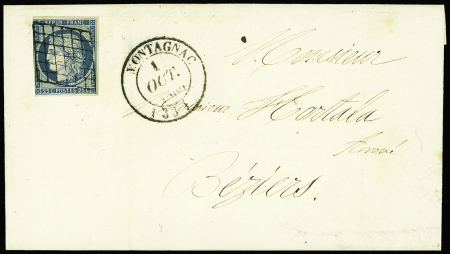 REPUB. FRANC.
25 C. POSTES 25 C.
MONTAGNAC
1
OCT.
(33)
Monsieur
Hortala
Béziers.